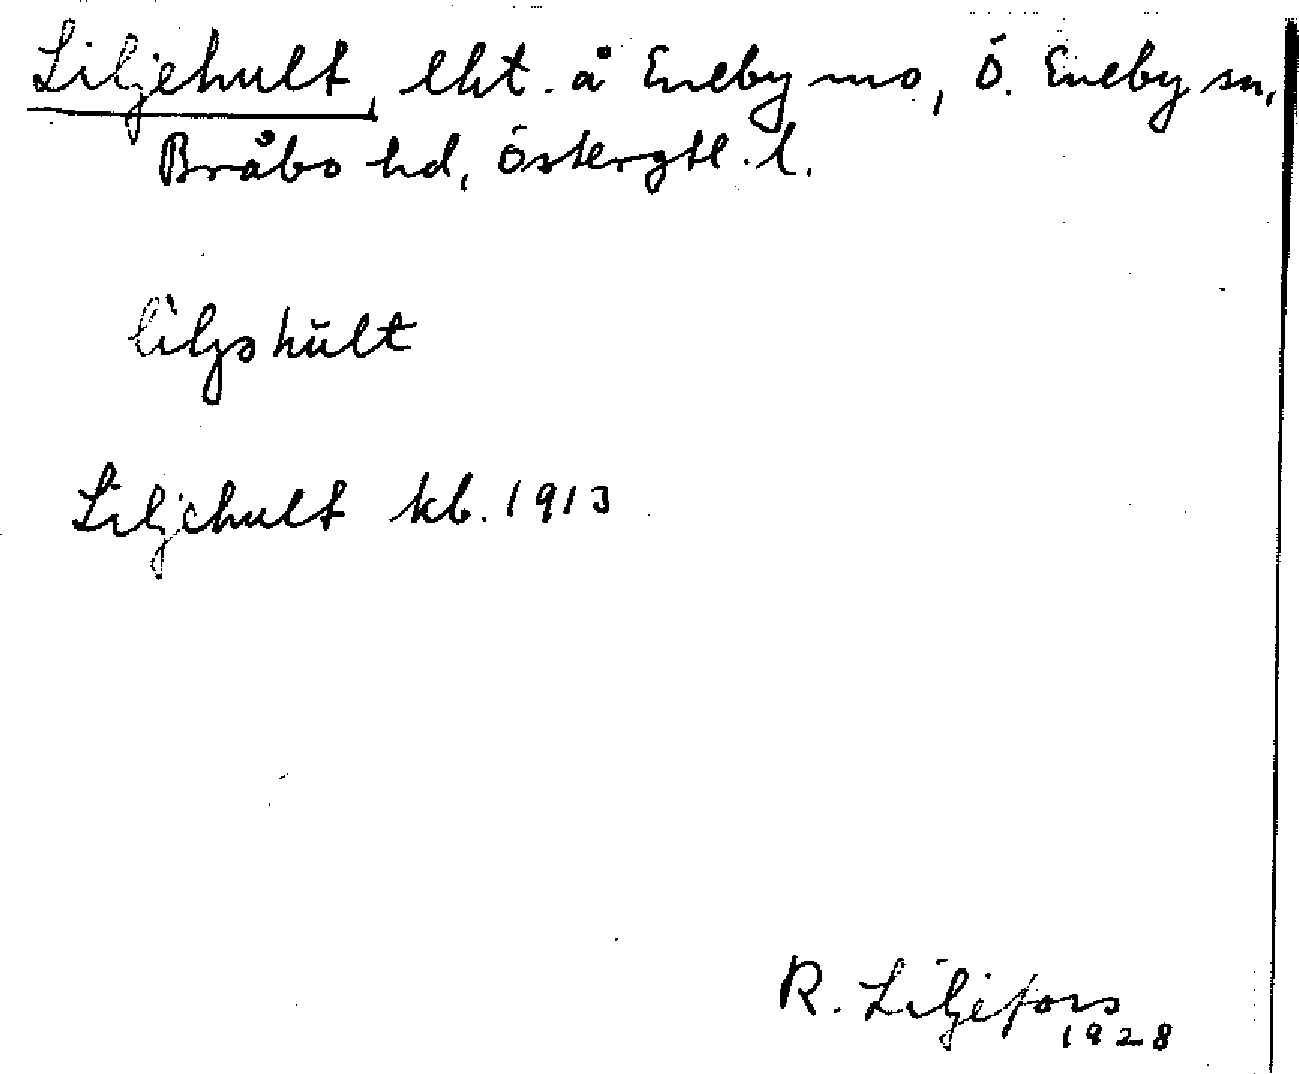 Liljehult, lht. å Eneby mo, Ö. Eneby sn,
Bråbo hd, Östergtl. l.
lìljəhu̇lt
Liljehult kb. 1913
R. Liljefors
1928